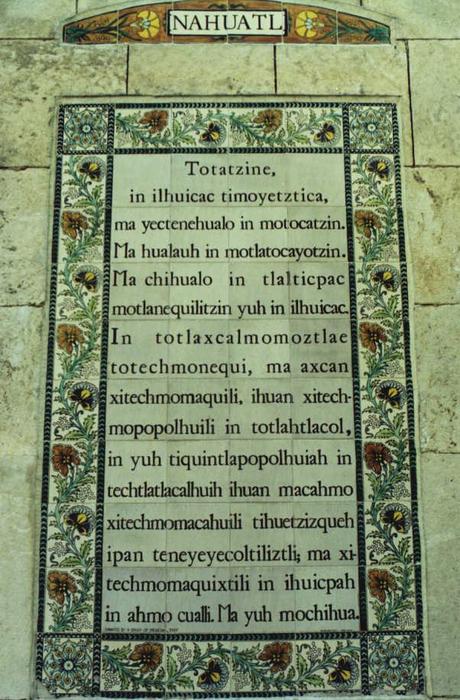 NAHUATL
Totatzine,
in ilhuicac timoyetztica,
ma yectenehualo in motocatzin.
Ma hualauh in motlatocayotzin.
Ma chihualo in tlalticpac
motlanequilitzin yuh in ilhuicac.
In totlaxcalmomoztlae
totechmonequi, ma axcan
xitechmomaquili, ihuan xitech-
mopopolhuili in totlahtlacol,
in yuh tiquintlapopolhuiah in
techtlatlacalhuih ihuan macahmo
xitechmomacahuili tihuetzizqueh
ipan teneyeyecoltiliztli; ma xi-
techmomaquixtili in ihuicpah
in ahmo cualli. Ma yuh mochihua.